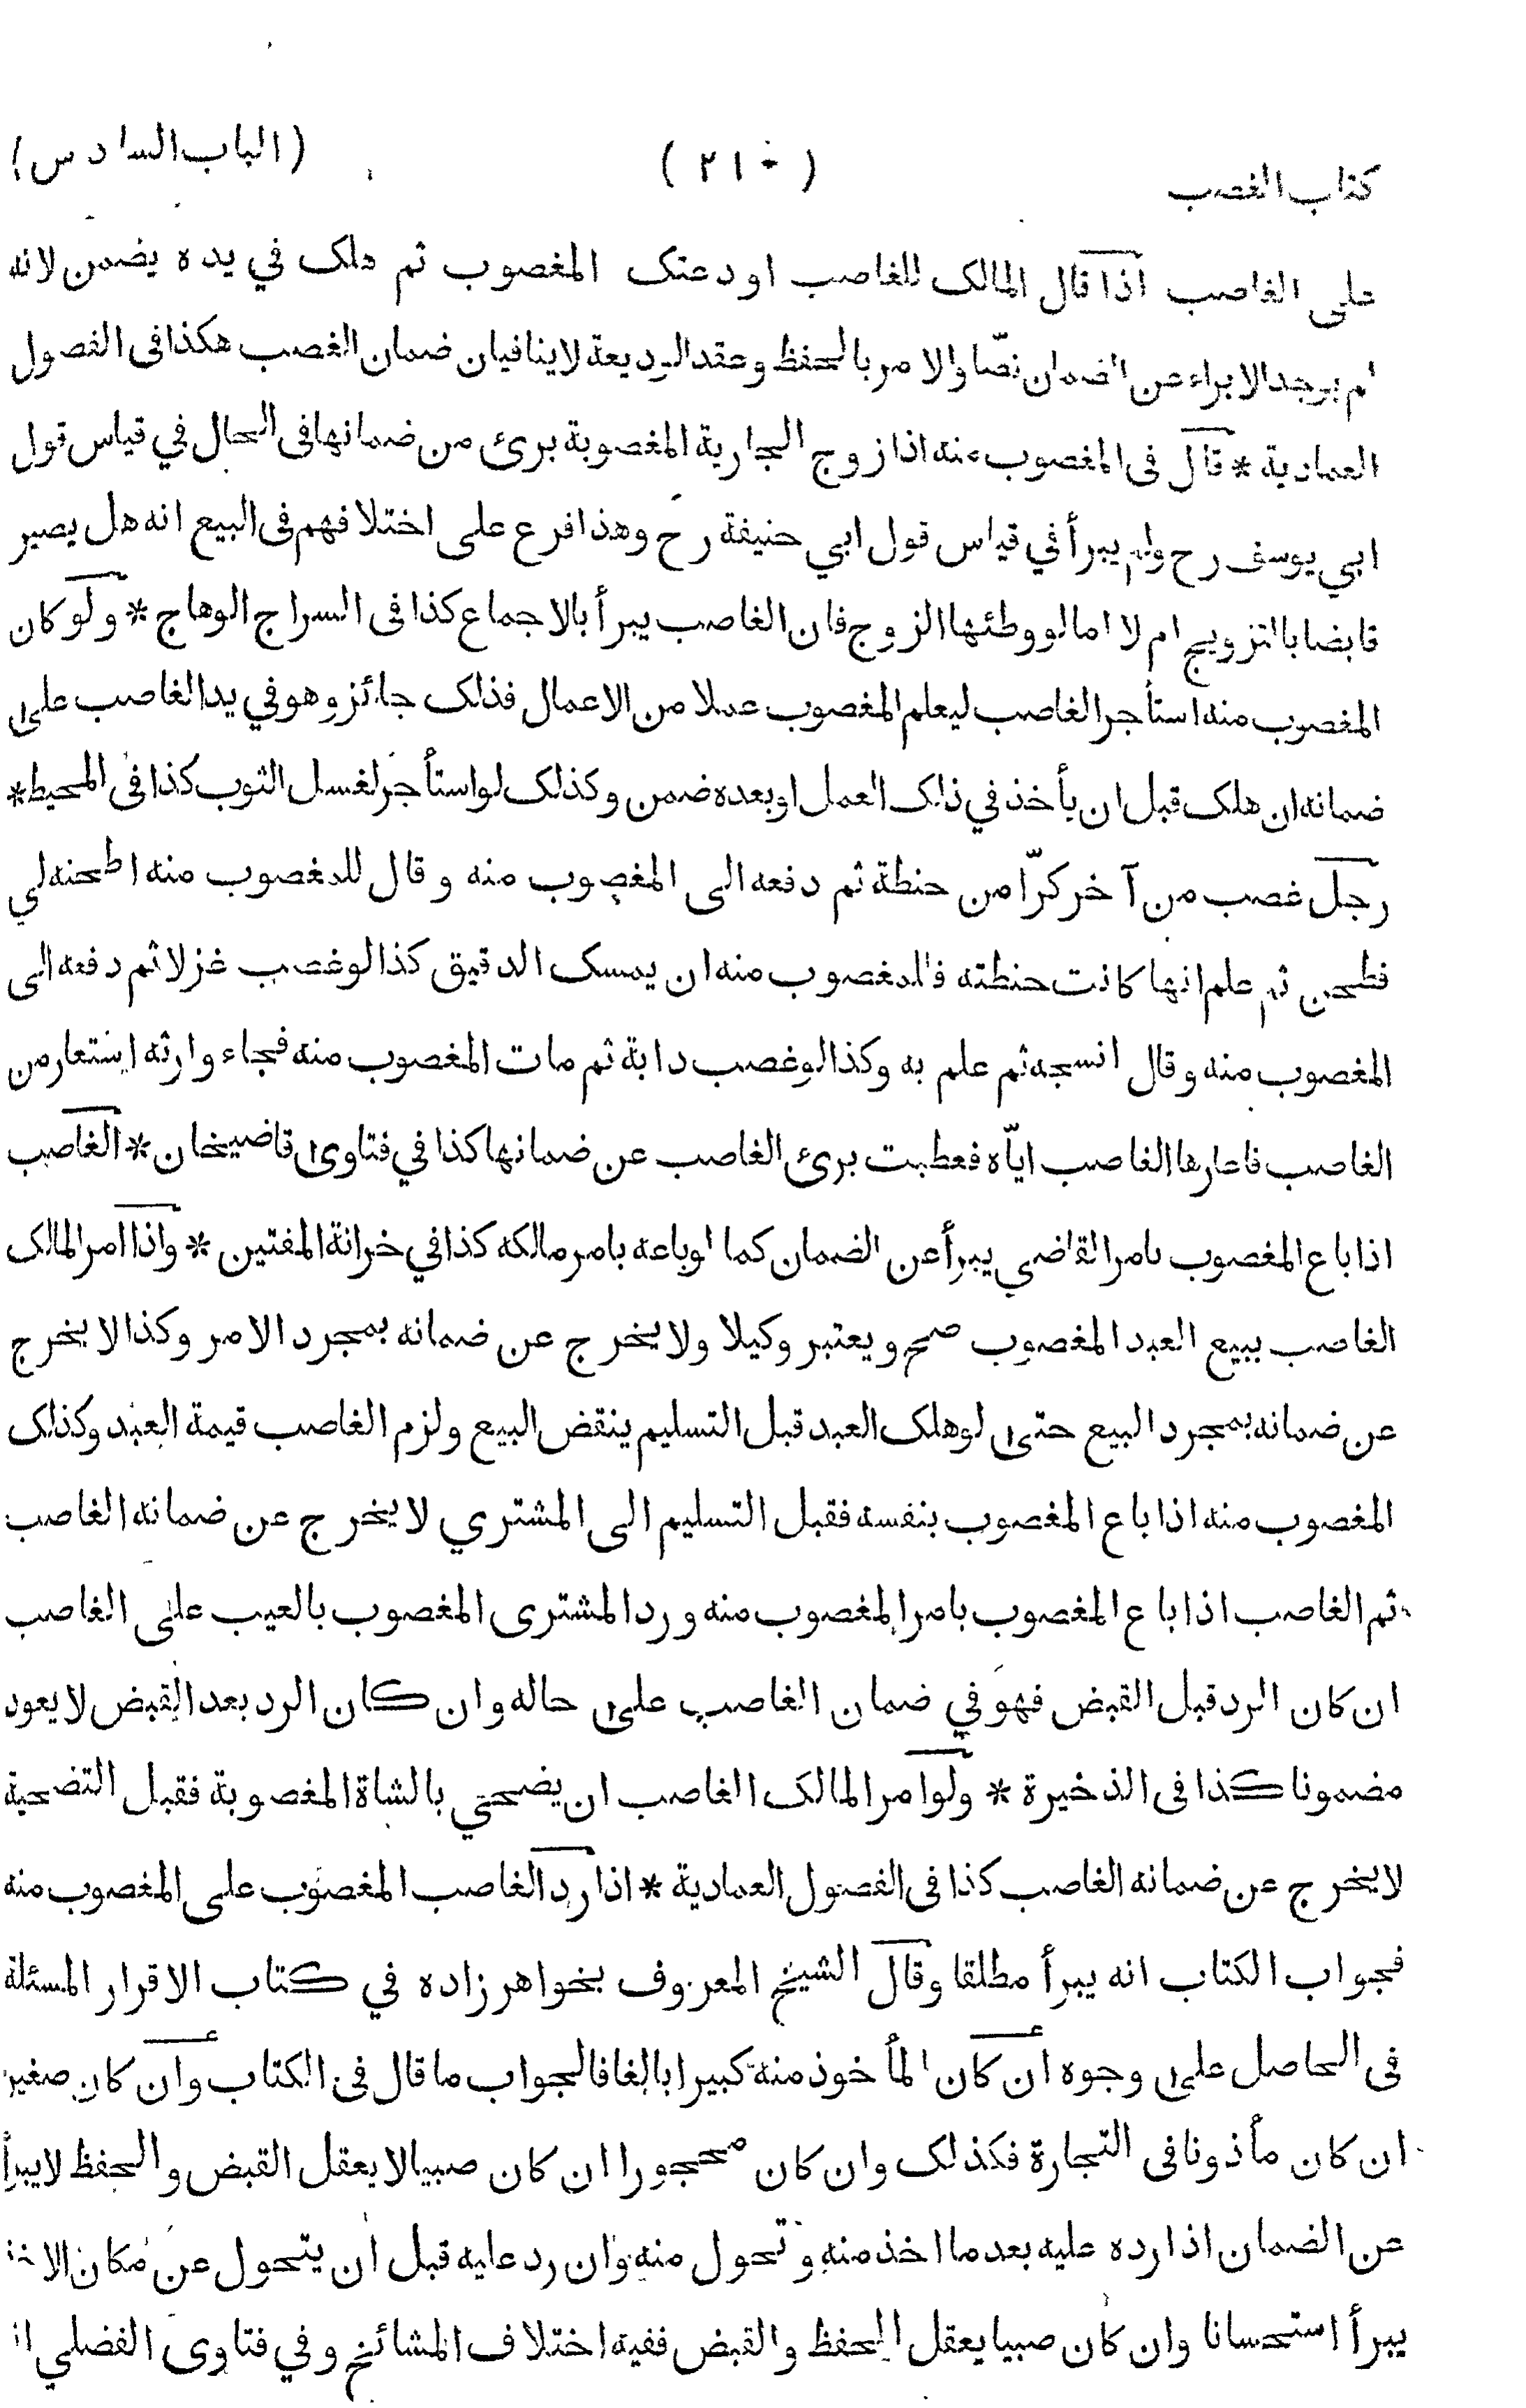 كتاب الغصب (٢١٠) (الباب السادس)
على الغاصب اذا قال المالك للغاصب اودعتك المغصوب ثم هلك في يده يضمن لانه
لم يوجد الابراء عن الضمان نصّا والامر بالحفظ وعقد الوديعة لاينافيان ضمان الغصب هكذا فى الفصول
العمادية * قال فى المغصوب منه اذا زوج الجارية المغصوبة برئ من ضمانها فى الحال في قياس قول
ابي يوسف رح ولم يبرأ في قياس قول ابي حنيفة رح وهذا فرع على اختلافهم فى البيع انه هل يصير
قابضا با لتزويج ام لا اما لو وطئها الزوج فان الغاصب يبرأ بالاجماع كذا فى السراج الوهاج * ولو كان
المغصوب منه استأجر الغاصب ليعلم المغصوب عملا من الاعمال فذلك جائز وهو في يد الغاصب على
ضمانه ان هلك قبل ان يأخذ في ذلك العمل او بعده ضمن وكذلك لو استأجر لغسل الثوب كذا فى المحيط *
رجل غصب من آخر كرّا من حنطة ثم دفعه الى المغصوب منه وقال للمغصوب منه اطحنه لي
فطحن ثم علم انها كانت حنطته فللمغصوب منه ان يمسك الدقيق كذا لو غصب غزلا ثم دفعه الى
المغصوب منه وقال انسجه ثم علم به وكذا لو غصب دابة ثم مات المغصوب منه فجاء وارثه استعار من
الغاصب فاعارها الغاصب ايّاه فعطبت برئ الغاصب عن ضمانها كذا في فتاوى قاضيخان * الغاصب
اذا باع المغصوب بامر القاضي يبرأ عن الضمان كما لو باعه بامر مالكه كذا في خزانة المفتين * واذا امر المالك
الغاصب ببيع العبد المغصوب صح ويعتبر وكيلا ولا يخرج عن ضمانه بمجرد الامر وكذا لا يخرج
عن ضمانه بمجرد البيع حتى لو هلك العبد قبل التسليم ينقض البيع ولزم الغاصب قيمة العبد وكذلك
المغصوب منه اذا باع المغصوب بنفسه فقبل التسليم الى المشتري لا يخرج عن ضمانه الغاصب
ثم الغاصب اذا باع المغصوب بامر المغصوب منه ورد المشترى المغصوب بالعيب على الغاصب
ان كان الرد قبل القبض فهو في ضمان الغاصب على حاله وان كان الرد بعد القبض لا يعود
مضمونا كذا فى الذخيرة * ولو امر المالك الغاصب ان يضحي بالشاة المغصوبة فقبل التضحية
لا يخرج عن ضمانه الغاصب كذا فى الفصول العمادية * اذا رد الغاصب المغصوب على المغصوب منه
فجواب الكتاب انه يبرأ مطلقا وقال الشيخ المعروف بخواهر زاده في كتاب الاقرار المسئلة
فى الحاصل على وجوه ان كان المأخوذ منه كبيرا بالغا فالجواب ما قال فى الكتاب وان كان صغير
ان كان مأذونا فى التجارة فكذلك وان كان محجورا ان كان صبيا لا يعقل القبض والحفظ لا يبرأ
عن الضمان اذا رده عليه بعد ما اخذ منه وتحول منه وان رد عليه قبل ان يتحول عن مكان
يبرأ استحسانا وان كان صبيا يعقل الحفظ والقبض ففيه اختلاف المشائخ وفي فتاوى الفضلي